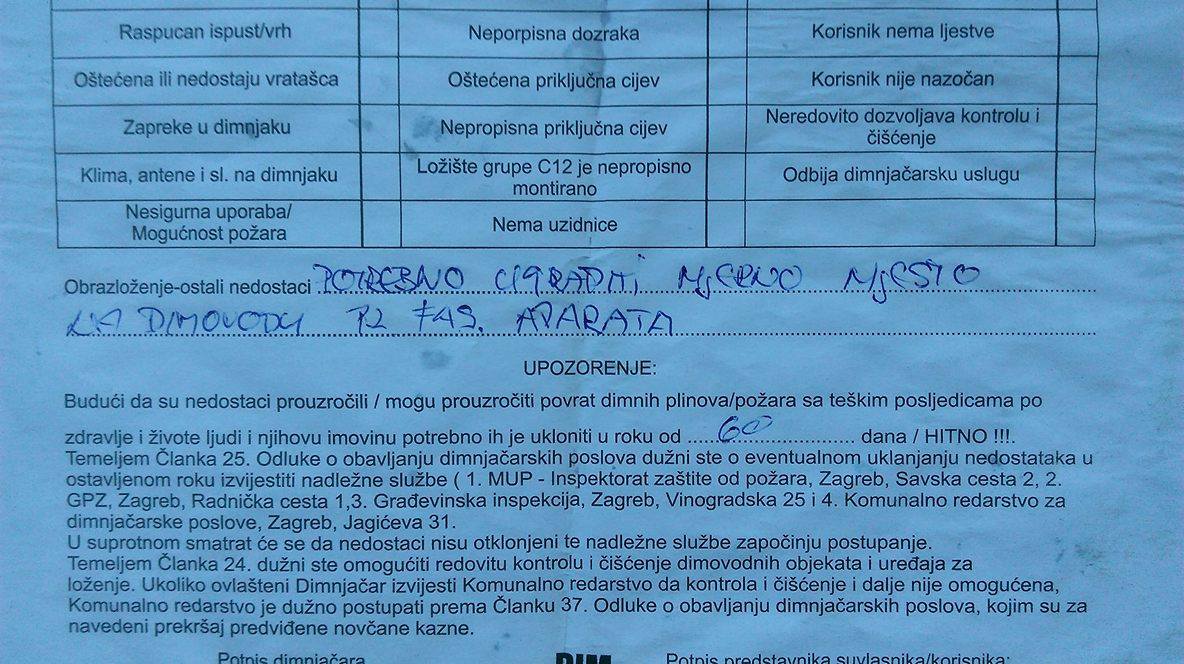 Raspucan ispust/vrh Neporpisna dozraka Korisnik nema ljestve
Oštećena ili nedostaju vratašca Oštećena priključna cijev Korisnik nije nazočan
Zapreke u dimnjaku Nepropisna priključna cijev Neredovito dozvoljava kontrolu i
čišćenje
Klima, antene i sl. na dimnjaku Ložište grupe C12 je nepropisno
montirano Odbija dimnjačarsku uslugu
Nesigurna uporaba/
Mogućnost požara Nema uzidnice
Obrazloženje-ostali nedostaci POTREBNO UGRADITI MJERNO MJESTO
NA DIMOVODU PL FAS. APARATA
UPOZORENJE:
Budući da su nedostaci prouzročili / mogu prouzročiti povrat dimnih plinova/požara sa teškim posljedicama po
zdravlje i živote ljudi i njihovu imovinu potrebno ih je ukloniti u roku od ......60............... dana / HITNO !!!.
Temeljem Članka 25. Odluke o obavljanju dimnjačarskih poslova dužni ste o eventualnom uklanjanju nedostataka u
ostavljenom roku izvijestiti nadležne službe ( 1. MUP - Inspektorat zaštite od požara, Zagreb, Savska cesta 2, 2.
GPZ, Zagreb, Radnička cesta 1,3. Građevinska inspekcija, Zagreb, Vinogradska 25 i 4. Komunalno redarstvo za
dimnjačarske poslove, Zagreb, Jagićeva 31.
U suprotnom smatrat će se da nedostaci nisu otklonjeni te nadležne službe započinju postupanje.
Temeljem Članka 24. dužni ste omogućiti redovitu kontrolu i čišćenje dimovodnih objekata i uređaja za
loženje. Ukoliko ovlašteni Dimnjačar izvijesti Komunalno redarstvo da kontrola i čišćenje i dalje nije omogućena,
Komunalno redarstvo je dužno postupati prema Članku 37. Odluke o obavljanju dimnjačarskih poslova, kojim su za
navedeni prekršaj predviđene novčane kazne.
Potpis dimnjačara DIM Potpis predstavnika suvlasnika/korisnika: